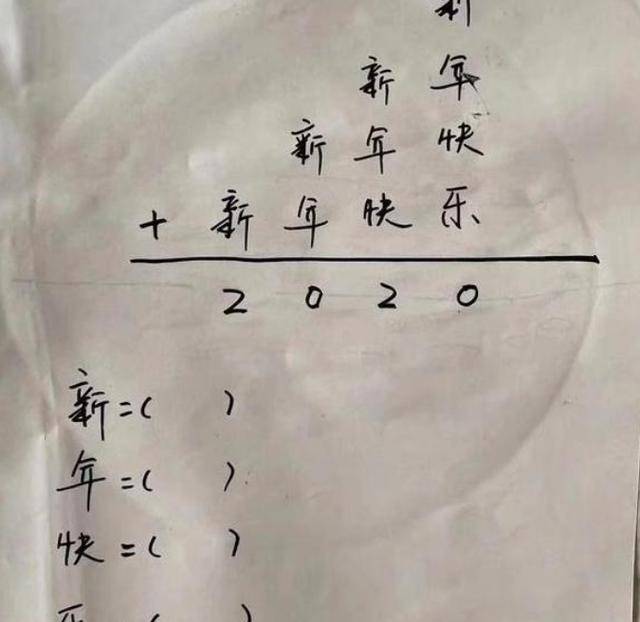 新年
新年快
+ 新年快乐
2020
新=( )
年=( )
快=( )